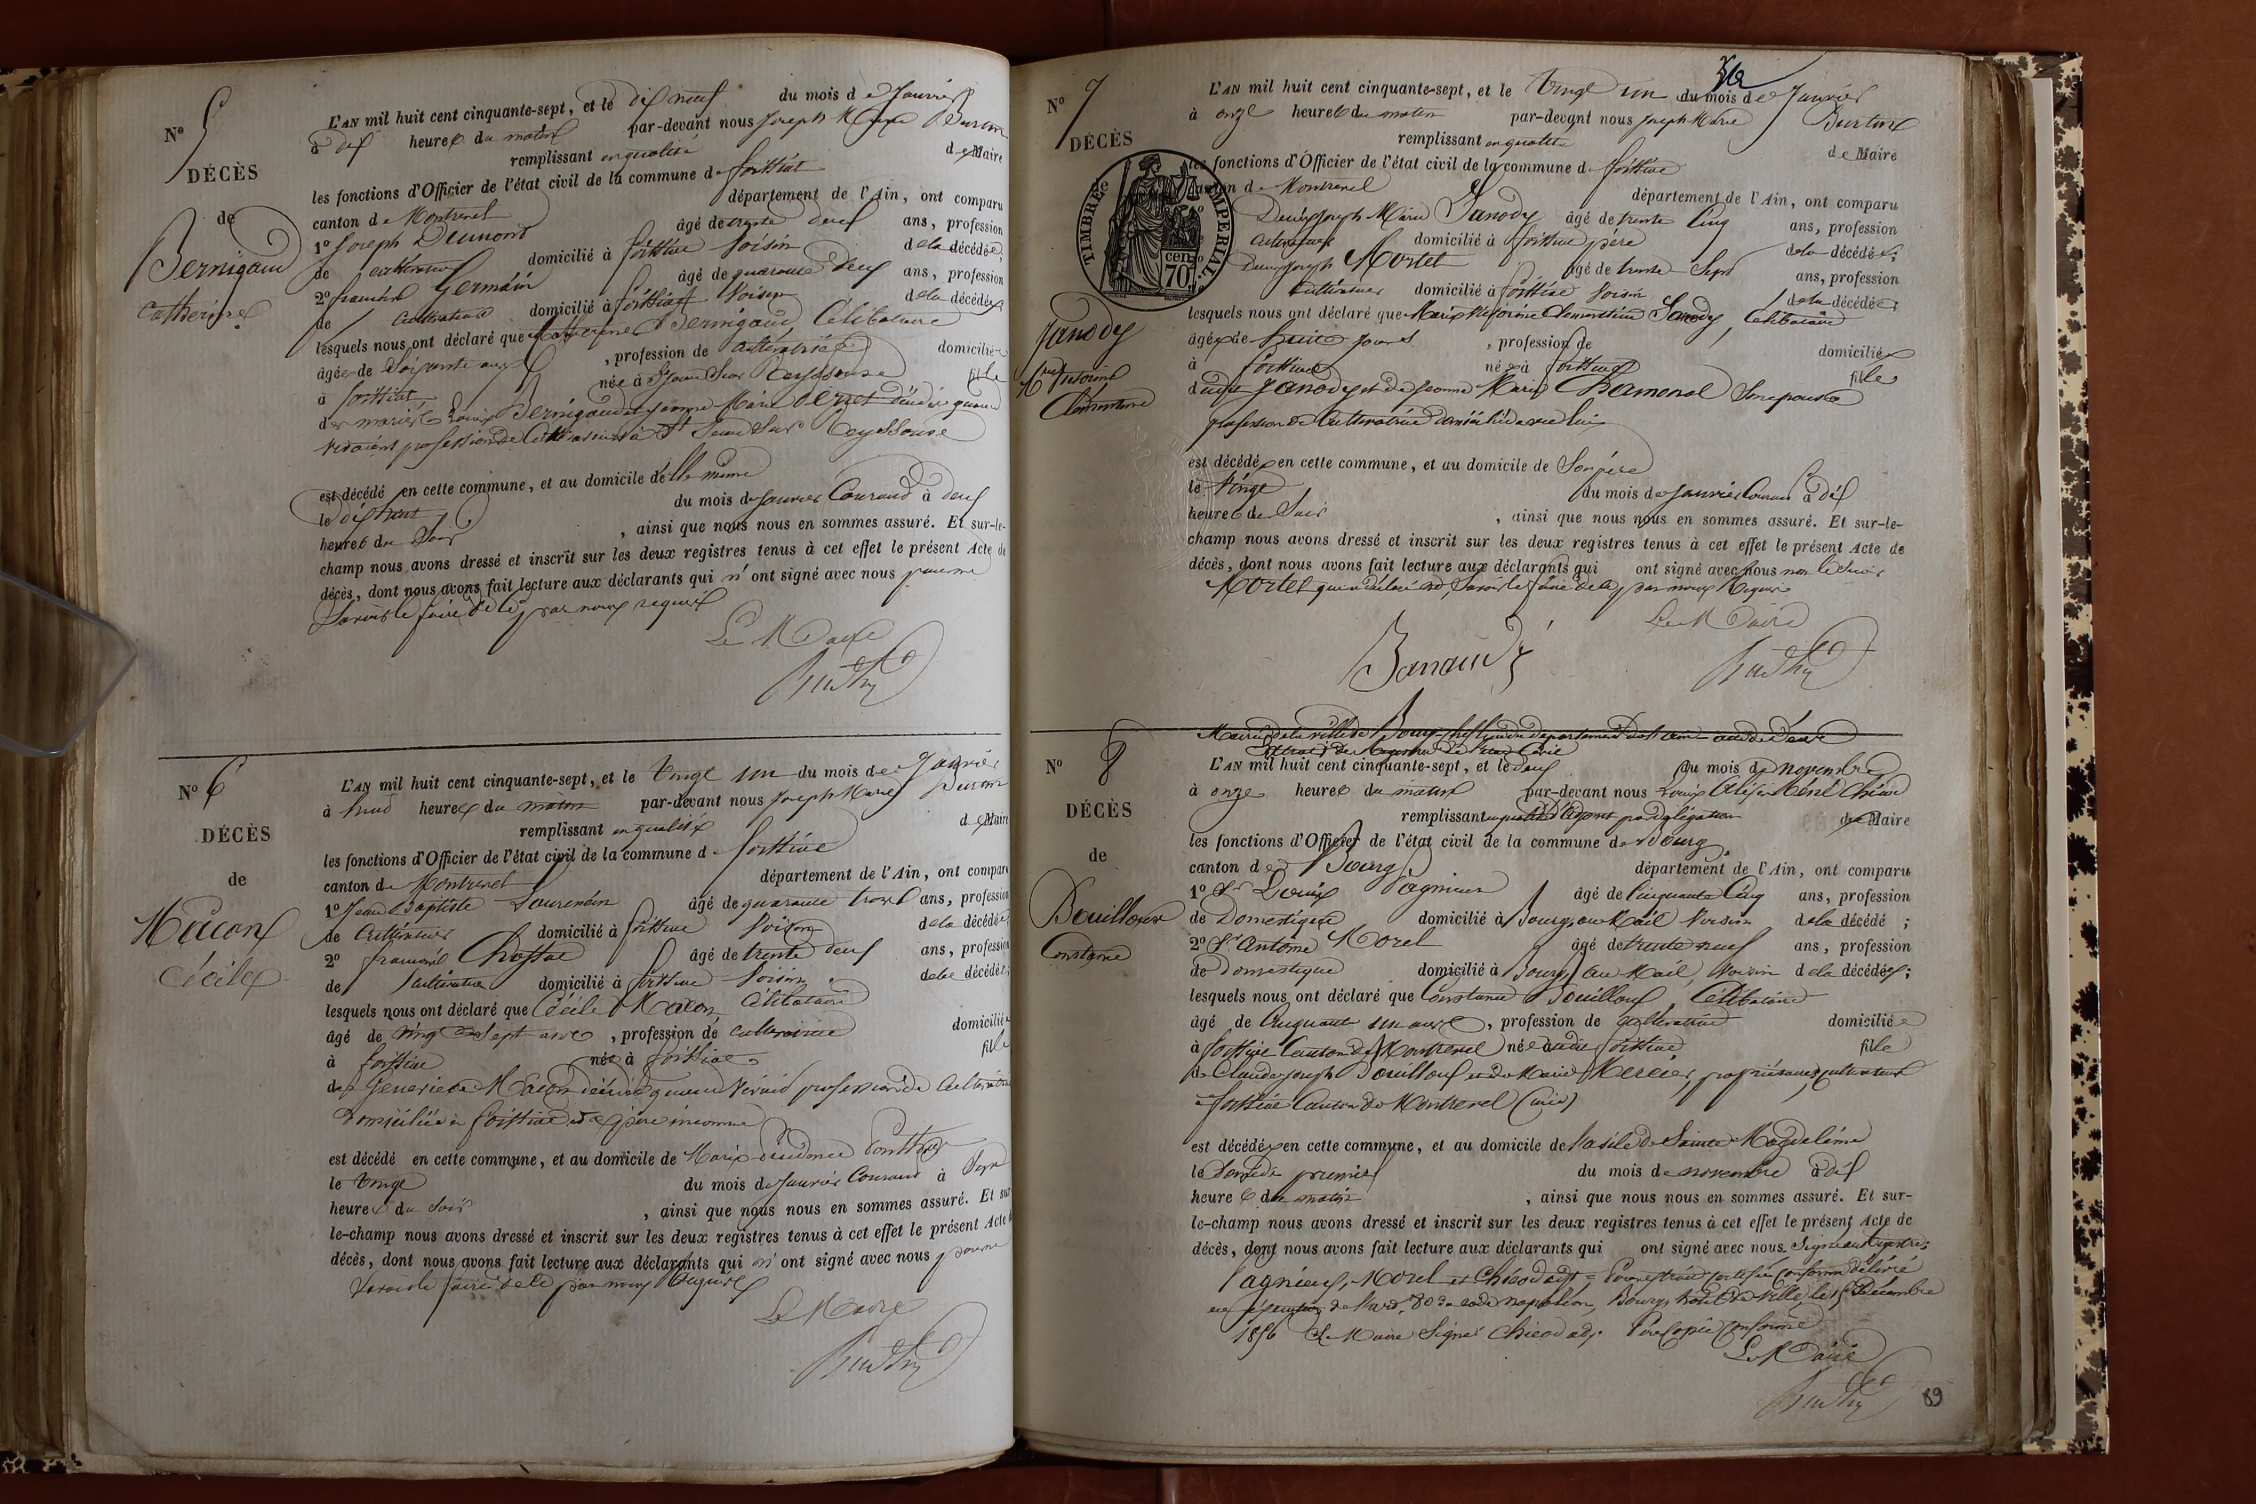 N° 5
DÉCÈS
de
Bernigaud
Catherine
L'AN mil huit cent cinquante-sept, et le dix neuf du mois de Janvier
à dix heures du matin par-devant nous Joseph Marie
remplissant en qualité de Maire
les fonctions d'Officier de l'état civil de la commune de foissiat
canton de Montrevel département de l'Ain, ont comparu
1° Joseph Dumond âgé de trente deux ans, profession
de cultivateur domicilié à foissiat voisin de la décédée;
2° Germain âgé de quarante deux ans, profession
de cultivateur domicilié à foissiat voisin de la décédée
lesquels nous ont déclaré que Catherine Bernigaud, Célibataire
âgée de Soixante ans, profession de cultivatrice domiciliée
à foissiat née à St Jean Sur Reyssouze fille
de Bernigaud et Jeanne Marie quand
vivaient profession de Cultivateurs à St Jean Sur Reyssouze
est décédé en cette commune, et au domicile d'elle même
le dix huit du mois de Janvier Courant à deux
heures du Soir, ainsi que nous nous en sommes assuré. Et sur-le-
champ nous avons dressé et inscrit sur les deux registres tenus à cet effet le présent Acte de
décès, dont nous avons fait lecture aux déclarants qui n'ont signé avec nous pour ne
Savoir le faire de ce par nous requis
Le Maire
N° 6
DÉCÈS
de
Macon
Cécile
L'AN mil huit cent cinquante-sept, et le vingt un du mois de Janvier
à huit heures du matin par-devant nous Joseph Marie
remplissant en qualité de Maire
les fonctions d'Officier de l'état civil de la commune de foissiat
canton de Montrevel département de l'Ain, ont comparu
1° Jean Baptiste Laurencin âgé de quarante trois ans, profession
de Cultivateur domicilié à foissiat voisin de la décédée
2° âgé de trente deux ans, profession
de Cultivateur domicilié à foissiat voisin de la décédée;
lesquels nous ont déclaré que Cécile Macon, Célibataire
âgé de vingt Sept ans, profession de cultivatrice domiciliée
à foissiat née à foissiat fille
de Macon quand vivait profession de Cultivatrice
domiciliée à foissiat et de père inconnu
est décédé en cette commune, et au domicile de Marie
le vingt du mois de Janvier Courant à Sept
heures du Soir, ainsi que nous nous en sommes assuré. Et sur
le-champ nous avons dressé et inscrit sur les deux registres tenus à cet effet le présent Acte de
décès, dont nous avons fait lecture aux déclarants qui n'ont signé avec nous pour ne
Savoir le faire de ce par nous Requis
Le Maire
N° 7
DÉCÈS
TIMBRE IMPERIAL
70 cen
Janody
Mie Victorine
Clémentine
L'AN mil huit cent cinquante-sept, et le vingt un du mois de Janvier
à onze heures du matin par-devant nous Joseph Marie
remplissant en qualité de Maire
les fonctions d'Officier de l'état civil de la commune de foissiat
canton de Montrevel département de l'Ain, ont comparu
Joseph Marie Janody âgé de trente Cinq ans, profession
Cultivateur domicilié à foissiat père de la décédée;
Joseph Mortel âgé de trente Sept ans, profession
Cultivateur domicilié à foissiat voisin de la décédée;
lesquels nous ont déclaré que Marie Victorine Clémentine Janody, Célibataire
âgée de huit jours, profession de domicilié
à foissiat née à foissiat fille
dudit Janody et de Jeanne Marie Damonal Son épouse
profession de Cultivatrice domiciliée avec lui
est décédé en cette commune, et au domicile de Son père
le vingt du mois de Janvier Courant à dix
heures du Soir, ainsi que nous nous en sommes assuré. Et sur-le-
champ nous avons dressé et inscrit sur les deux registres tenus à cet effet le présent Acte de
décès, dont nous avons fait lecture aux déclarants qui ont signé avec nous non le
Mortel qui a déclaré ne Savoir le faire de ce par nous Requis
Le Maire
N° 8
DÉCÈS
de
Bouilloux
Constance
Mairie de la ville de Bourg chef lieu du département de l'ain acte de décès
Extrait du Registre de l'état Civil
L'AN mil huit cent cinquante-sept, et le deux du mois de novembre
à onze heures du matin par-devant nous Louis
remplissant en qualité d'adjoint par délégation de Maire
les fonctions d'Officier de l'état civil de la commune de Bourg
canton de Bourg département de l'Ain, ont comparu
1° Sr Louis Pagnieux âgé de Cinquante Cinq ans, profession
de Domestique domicilié à Bourg, au Mail voisin de la décédé;
2° Sr Antoine Morel âgé de trente neuf ans, profession
de Domestique domicilié à Bourg au Mail, voisin de la décédée;
lesquels nous ont déclaré que Constance Bouilloux, Célibataire
âgé de Cinquante un ans, profession de domiciliée
à foissiat Canton de Montrevel née audit foissiat fille
de Claude Joseph Bouilloux et de Marie Mercier, propriétaires cultivateurs
à foissiat Canton de Montrevel (ain)
est décédée en cette commune, et au domicile de l'asile de Sainte Magdeleine
le Samedi premier du mois de novembre à dix
heures du matin, ainsi que nous nous en sommes assuré. Et sur-
le-champ nous avons dressé et inscrit sur les deux registres tenus à cet effet le présent Acte de
décès, dont nous avons fait lecture aux déclarants qui ont signé avec nous
Pagnieux, Morel et Chicod adjt = Pour extrait certifié conforme délivré
en de l'art. 80 du code napoléon, Bourg, hotel de Ville, le 15 Décembre
1856 Le Maire Signé Chicod adj. Pour Copie Conforme
Le Maire
89